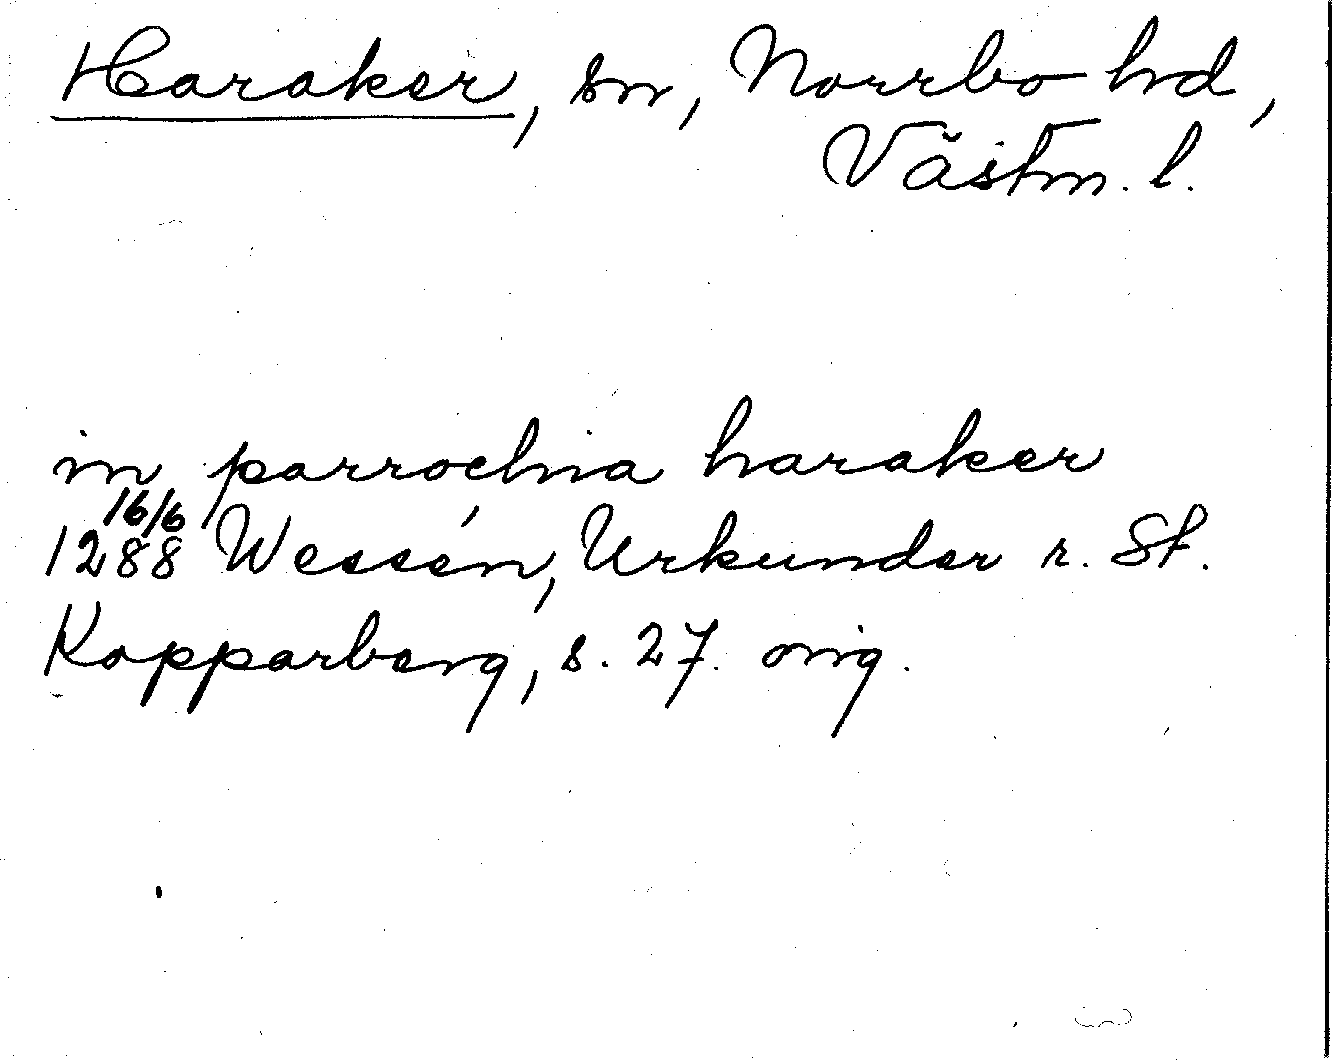 Haraker, sn, Norrbo hd,
Västm. l.
in parrochia haraker
16/6
1288 Wessén, Urkunder r. St.
Kopparberg, s. 27. orig.